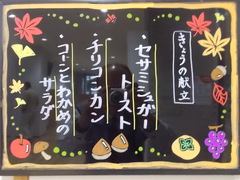 きょうの献立
・セサミシュガー
トースト
・チリコンカン
・コーンとわかめの
サラダ